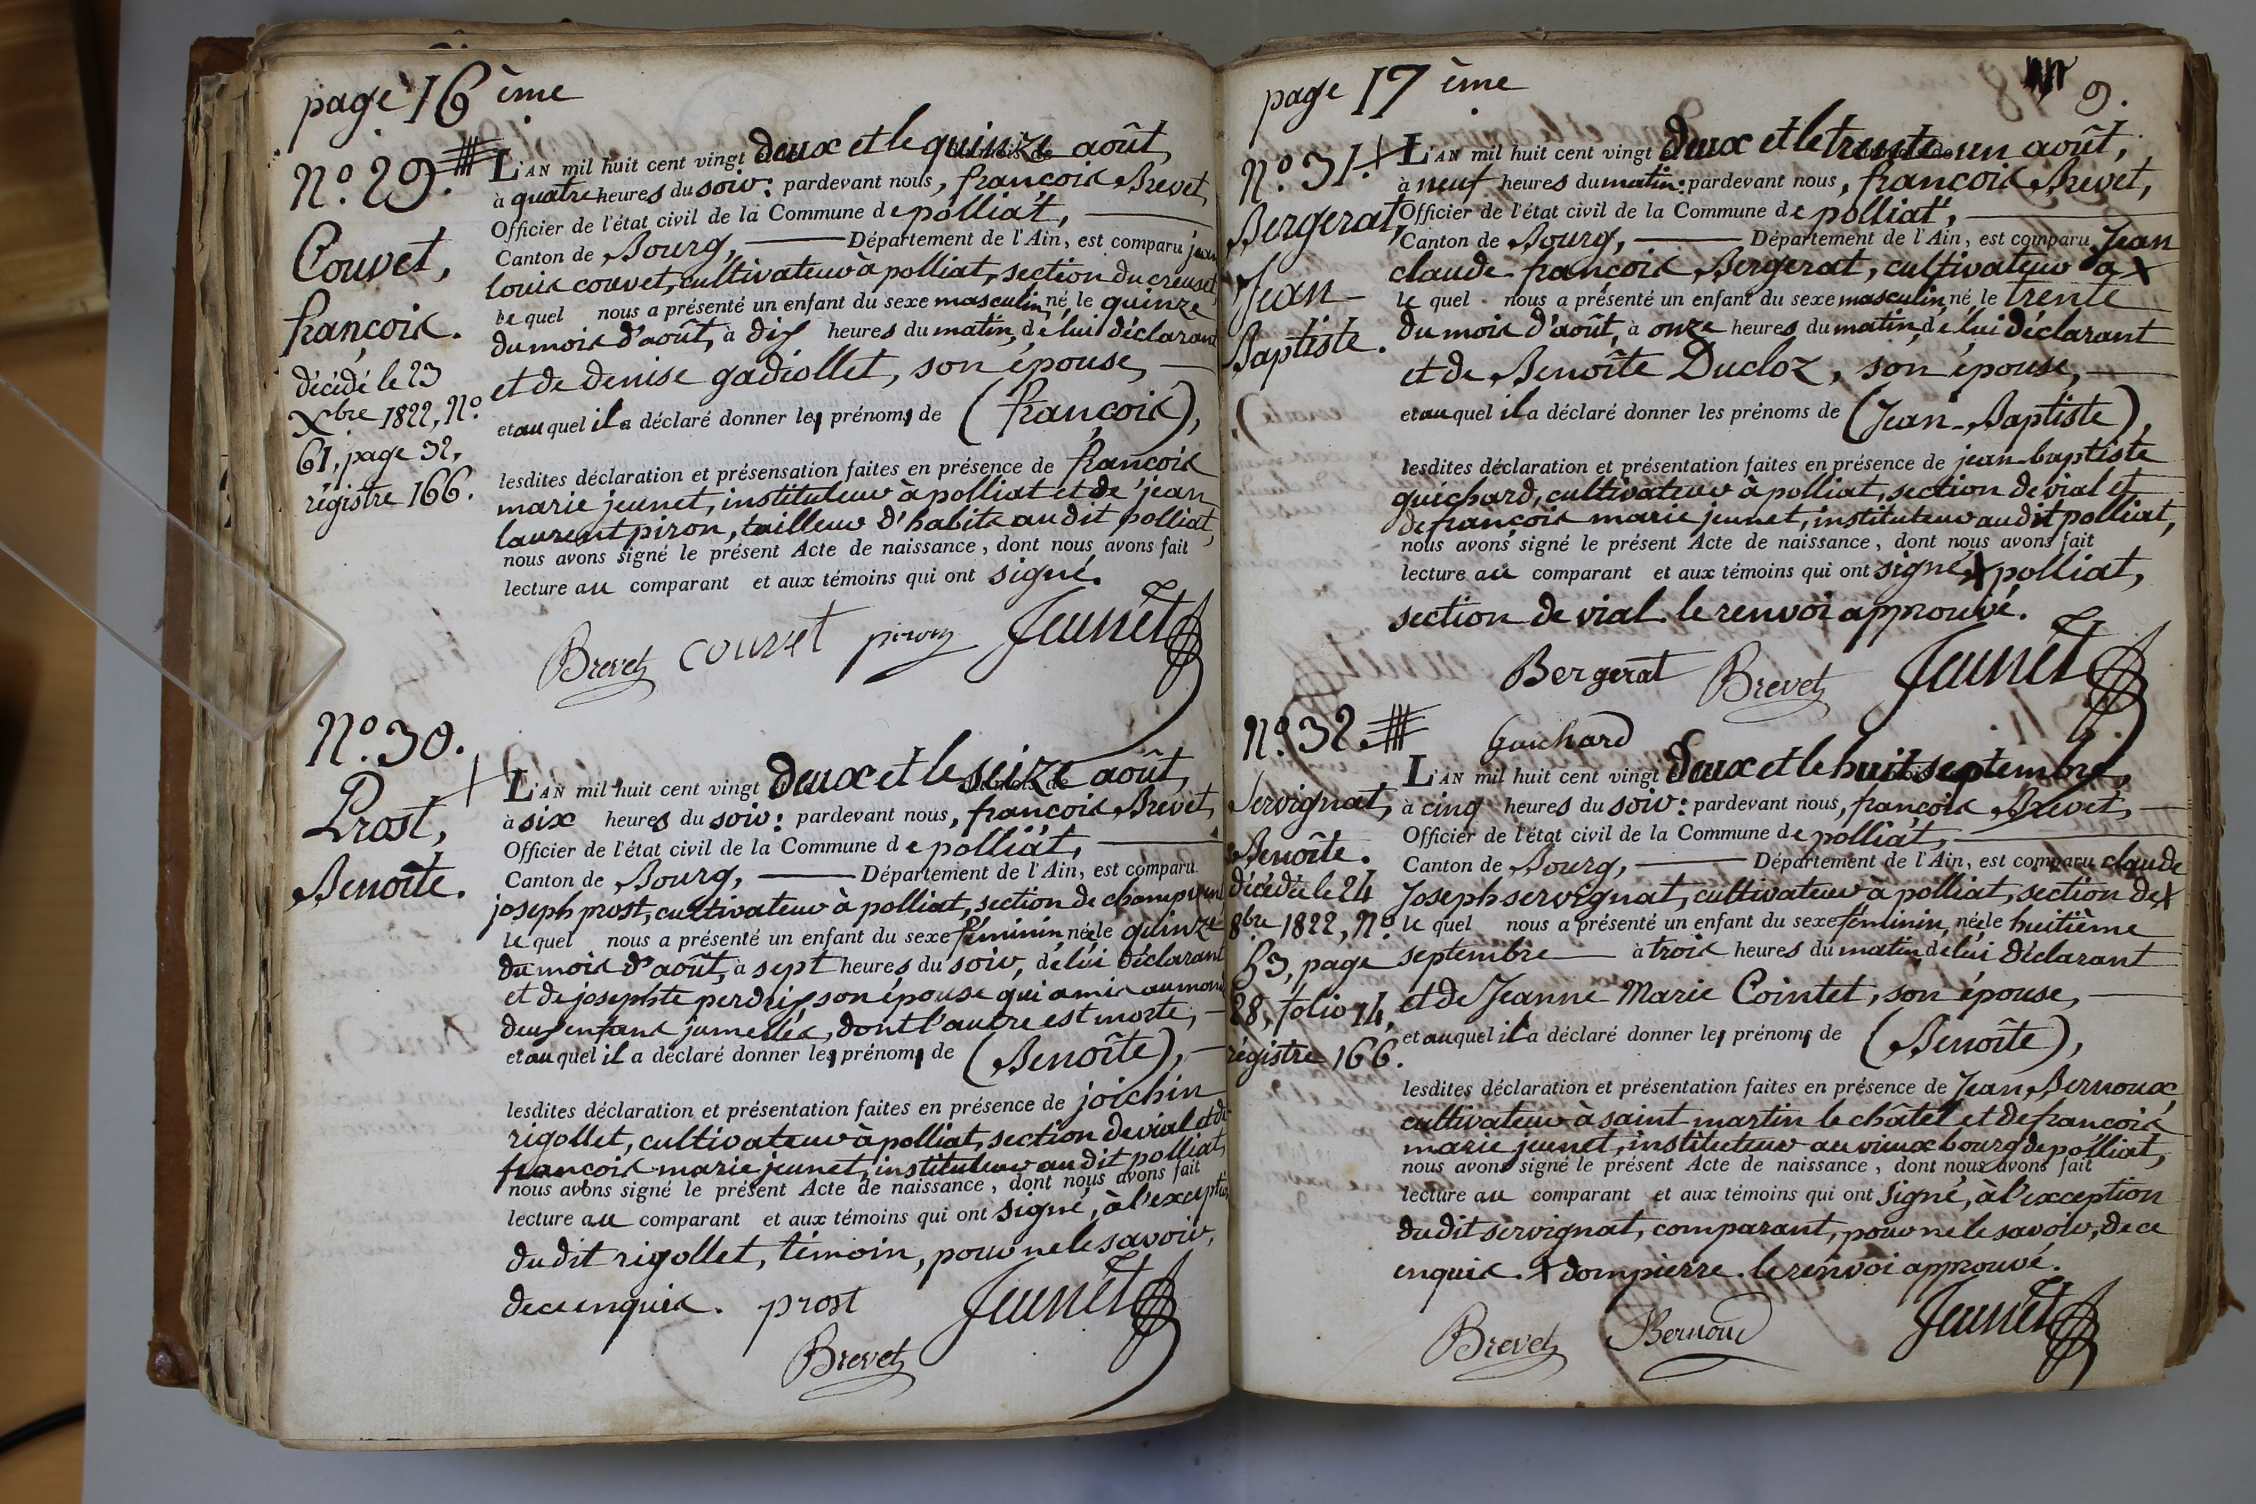 page 16 ème
N.º 29.
Couvet,
françois.
décédé le 23
Xbre 1822, N.º
61, page 32,
régistre 166.
L'AN mil huit cent vingt deux et le quinze août,
à quatre heures du soir: pardevant nous, françois Brevet,
Officier de l'état civil de la Commune de polliat,
Canton de Bourg, Département de l'Ain, est comparu jean
louis couvet, cultivateur à polliat, section du creuset,
le quel nous a présenté un enfant du sexe masculin, né, le quinze
du mois d'août, à dix heures du matin, de lui déclarant
et de denise gadiollet, son épouse,
et au quel il a déclaré donner les prénoms de (françois),
lesdites déclaration et présensation faites en présence de françois
marie jeunet, instituteur à polliat et de jean
laurent piron, tailleur d'habits audit polliat,
nous avons signé le présent Acte de naissance, dont nous avons fait
lecture au comparant et aux témoins qui ont signé.
Brevet couvet piron Jeunet
N.º 30.
Prost,
Benoîte.
L'AN mil huit cent vingt deux et le seize août,
à six heures du soir: pardevant nous, françois Brevet,
Officier de l'état civil de la Commune de polliat,
Canton de Bourg, Département de l'Ain, est comparu
joseph prost, cultivateur à polliat, section de champvent
le quel nous a présenté un enfant du sexe féminin, née, le quinze
du mois d'août, à sept heures du soir, de lui déclarant
et de josephte perdrix son épouse qui a mis au monde
deux enfans jumelles, dont l'autre est morte,
et au quel il a déclaré donner les prénoms de (Benoîte),
lesdites déclaration et présentation faites en présence de joichin
rigollet, cultivateur à polliat, section de vial et de
françois marie jeunet, instituteur audit polliat,
nous avons signé le présent Acte de naissance, dont nous avons fait
lecture au comparant et aux témoins qui ont signé, à l'exception
dudit rigollet, témoin, pour ne le savoir,
de ce enquis. prost Jeunet
Brevet
page 17 ème
9.
N.º 31.
Bergerat,
Jean-
Baptiste.
L'AN mil huit cent vingt deux et le trente un août,
à neuf heures du matin: pardevant nous, françois Brevet,
Officier de l'état civil de la Commune de polliat,
Canton de Bourg, Département de l'Ain, est comparu Jean
claude françois Bergerat, cultivateur à X
le quel nous a présenté un enfant du sexe masculin, né, le trente
du mois d'août, à onze heures du matin, de lui déclarant
et de Benoîte Ducloz, son épouse,
et au quel il a déclaré donner les prénoms de (Jean-Baptiste),
lesdites déclaration et présentation faites en présence de jean baptiste
guichard, cultivateur à polliat, section de vial et
de françois marie jeunet, instituteur audit polliat,
nous avons signé le présent Acte de naissance, dont nous avons fait
lecture au comparant et aux témoins qui ont signé, X polliat,
section de vial. le renvoi approuvé.
Bergerat Brevet Jeunet
Guichard
N.º 32.
Servignat,
Benoîte.
décédée le 24
8bre 1822, N.º
53, page
28, folio 14,
régistre 166.
L'AN mil huit cent vingt deux et le huit septembre,
à cinq heures du soir: pardevant nous, françois Brevet,
Officier de l'état civil de la Commune de polliat,
Canton de Bourg, Département de l'Ain, est comparu claude
Joseph servignat, cultivateur à polliat, section de X
le quel nous a présenté un enfant du sexe féminin, née, le huitième
septembre à trois heures du matin, de lui déclarant
et de Jeanne Marie Cointet, son épouse,
et au quel il a déclaré donner les prénoms de (Benoîte),
lesdites déclaration et présentation faites en présence de Jean Bernoux
cultivateur à saint martin le châtel et de françois
marie jeunet, instituteur au vieux bourg de polliat,
nous avons signé le présent Acte de naissance, dont nous avons fait
lecture au comparant et aux témoins qui ont signé, à l'exception
dudit servignat, comparant, pour ne le savoir, de ce
enquis. X dompierre. le renvoi approuvé.
Brevet Bernoud Jeunet